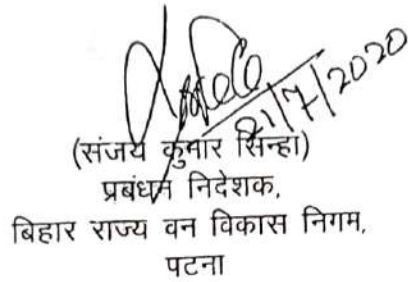 21/7/2020
(संजय कुमार सिन्हा)
प्रबंधन निदेशक,
बिहार राज्य वन विकास निगम,
पटना